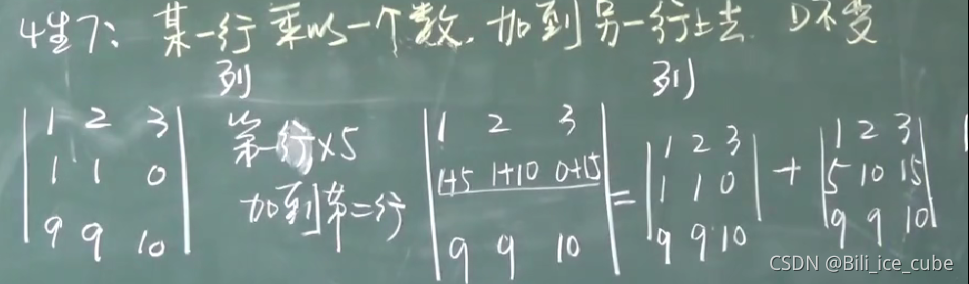 性7: 某一行乘以一个数,加到另一行上去 D不变
列 列
1 2 3
1 1 0
9 9 10
第一行×5
加到第二行
1 2 3
1+5 1+10 0+15
9 9 10
=
1 2 3
1 1 0
9 9 10
+
1 2 3
5 10 15
9 9 10
CSDN @Bili_ice_cube